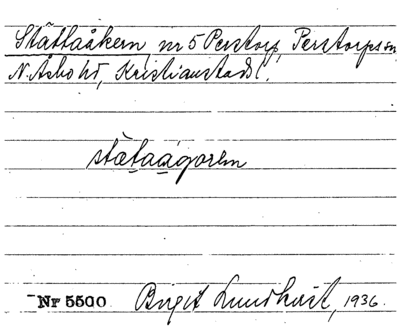 Stättaåkern nr 5 Perstorp, Perstorps sn
N. Åsbo hd, Kristianstads l.
stätaågoren
Nr 5500 Birgit Lundkvist, 1936.